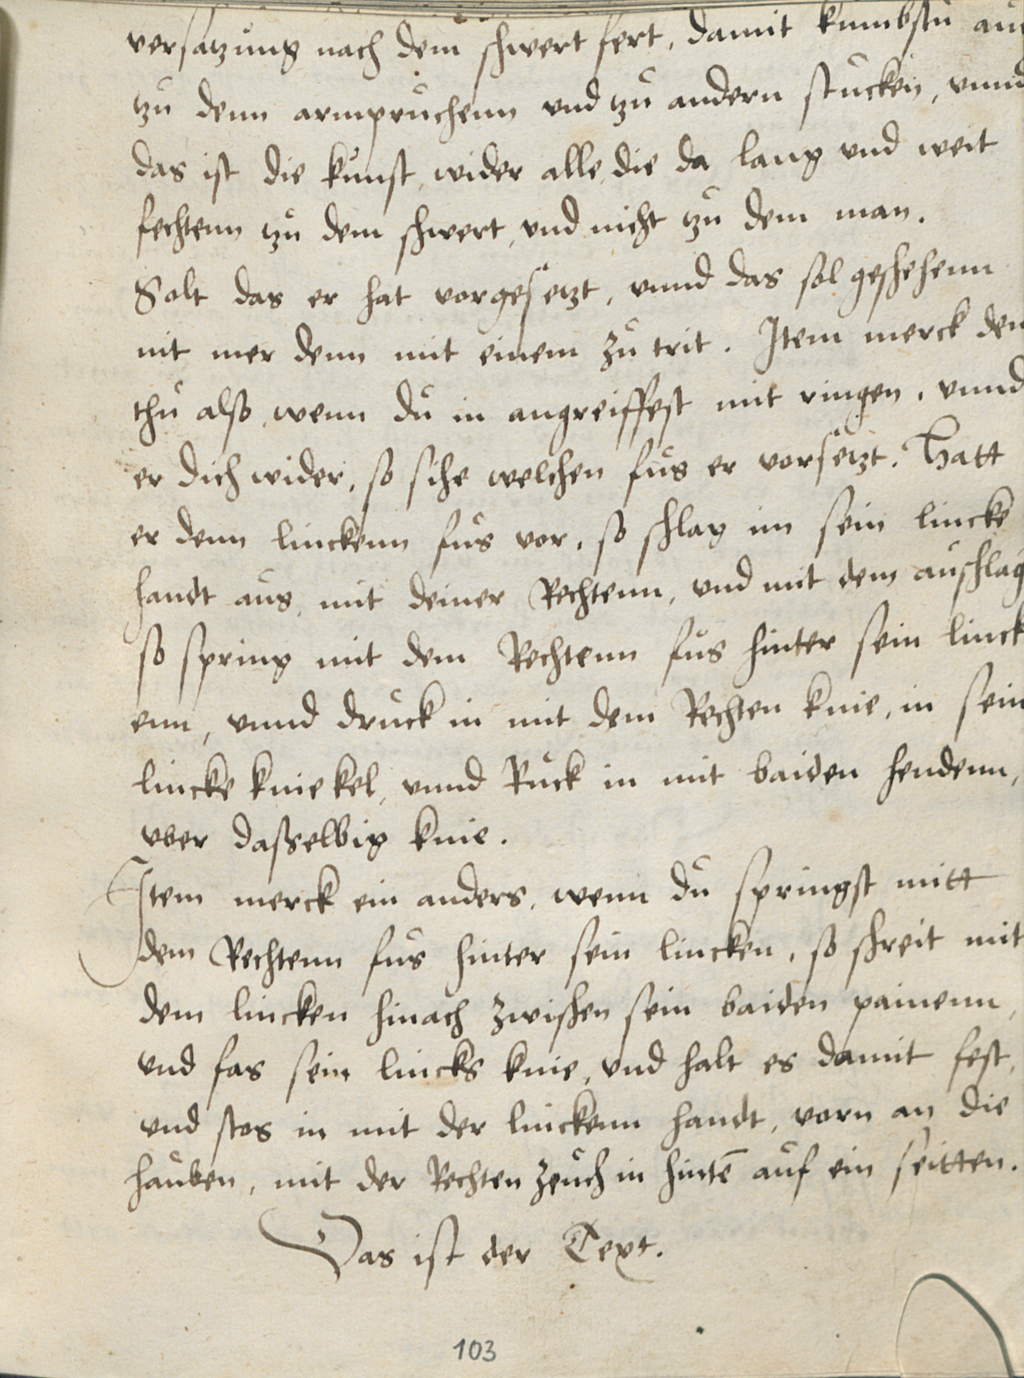 versatzung nach dem schwert fert, damit kumbstu auc
tzu denn armpruchenn vnd tzu andern stucken, vnnd
das ist die kunst, wider alle, die da lang vnd weit
fechtenn tzu dem schwert, vnd nicht tzu dem man.
Solt das er hat vorgesetzt, vnnd das sol geschehenn
nit mer denn mit einem zu trit. Item merck den
thu also, wenn du in angreiffest mit ringen, vnnd
er dich wider, so sihe welchen fus er vorsetzt. Hatt
er denn linckenn fus vor, so schlag im sein lincke
handt aus, mit deiner Rechtenn, vnd mit dem auschlag
so spring mit dem Rechtenn fus hinter sein linck
enn, vnnd druck in mit dem Rechten knie, in sein
lincke kniekel, vnnd Ruck in mit baiden hendenn,
vber dasselbig knie.
Item merck ein anders, wenn du springst mitt
dem Rechtenn fus hinter sein lincken, so schreit mit
dem lincken hinach zwischen sein baiden painenn,
vnd fas sein lincks knie, vnd halt es damit fest,
vnd stos in mit der linckenn handt, vorn an die
hauben, mit der Rechten zeuch in hintē auf ein seitten.
Das ist der Text.
103